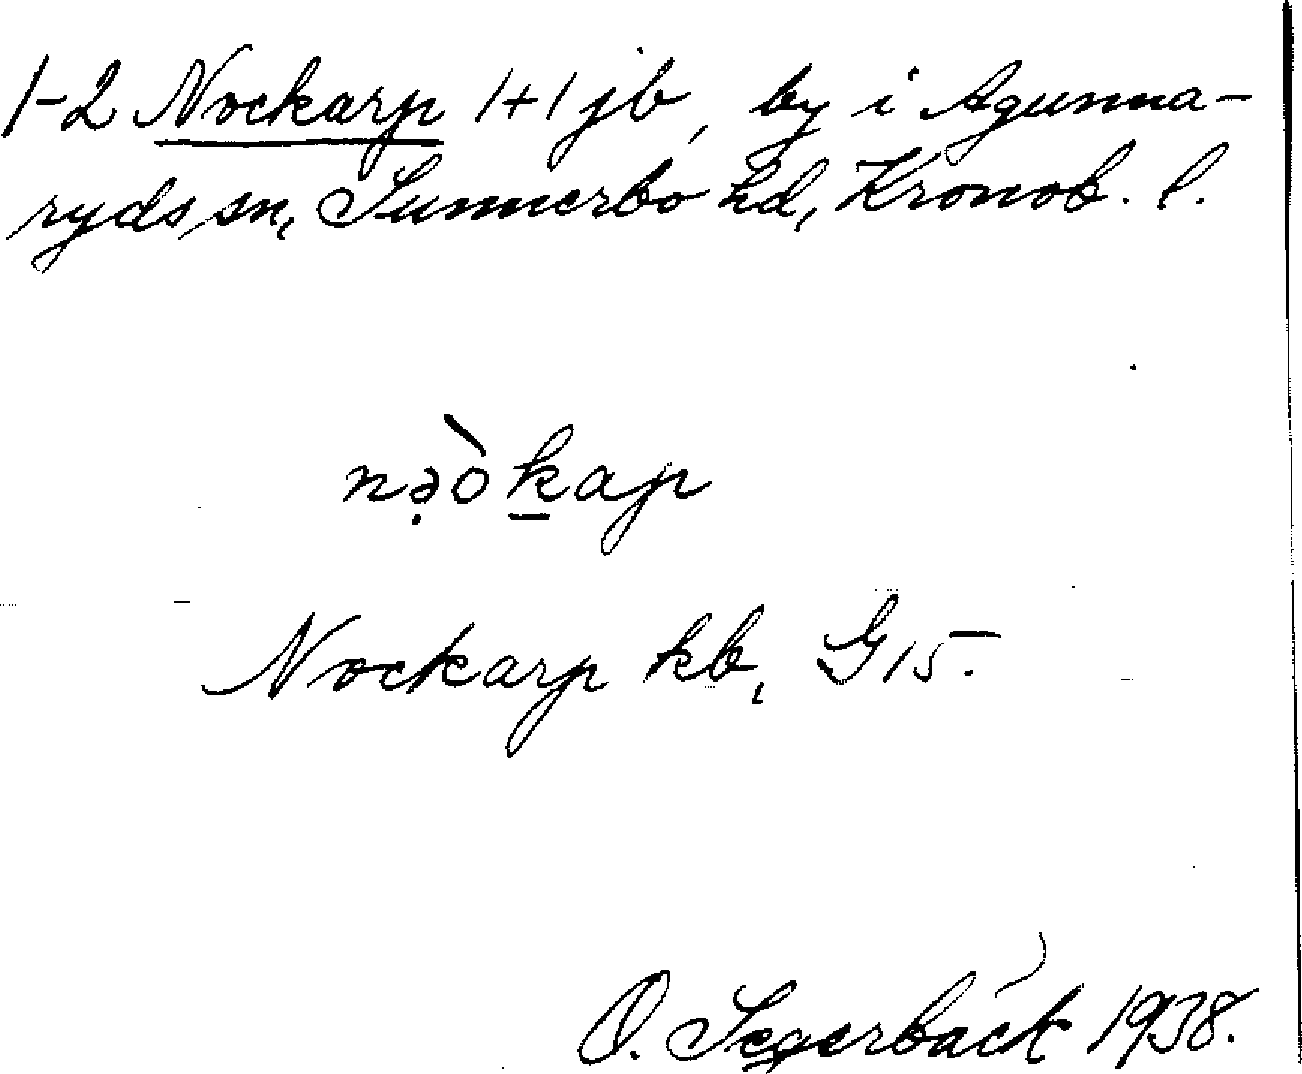 1-2 Nockarp 1+1 jb, by i Agunna-
ryds sn, Sunnerbo hd, Kronob. l.
nə̣òk̲ap
Nockarp kb, G15.
O. Segerbäck 1938.